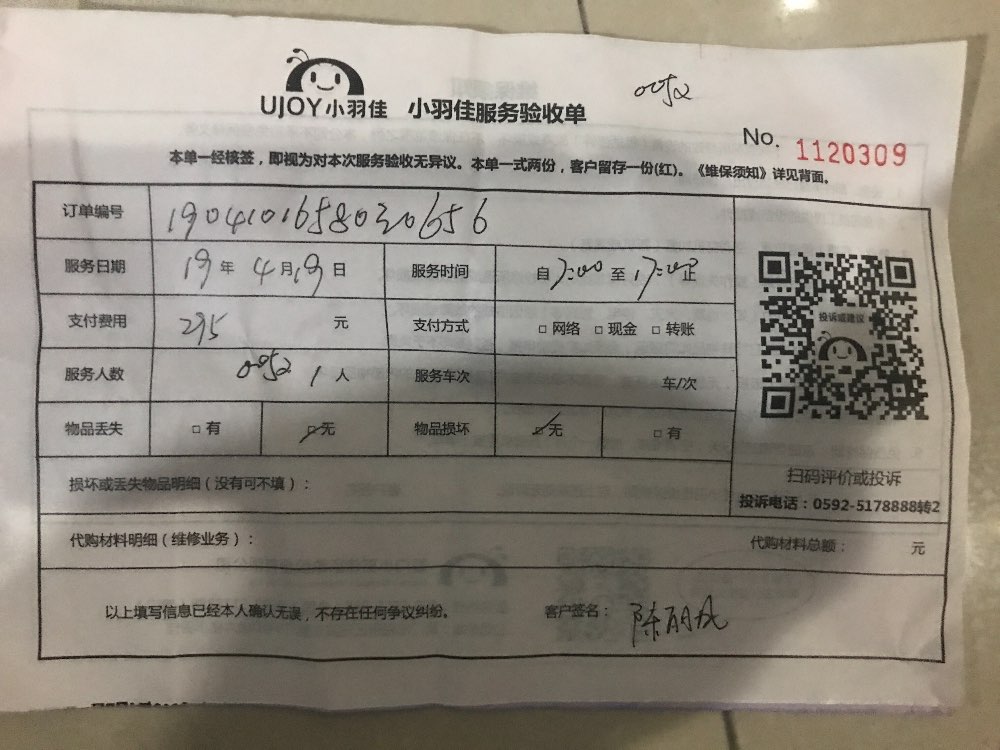 0052
UJOY小羽佳 小羽佳服务验收单
No. 1120309
本单一经核签，即视为对本次服务验收无异议。本单一式两份，客户留存一份(红)。《维保须知》详见背面。
订单编号 1904101658030656
服务日期 19年4月19日 服务时间 自7:00至17:00止
支付费用 295 元 支付方式 □网络 □现金 □转账
投诉或建议
服务人数 0052 1人 服务车次 车/次
物品丢失 □有 □无 物品损坏 □无 □有
扫码评价或投诉
损坏或丢失物品明细（没有可不填）：
投诉电话：0592-5178888转2
代购材料明细（维修业务）： 代购材料总额： 元
以上填写信息已经本人确认无误，不存在任何争议纠纷。 客户签名： 陈丽凡